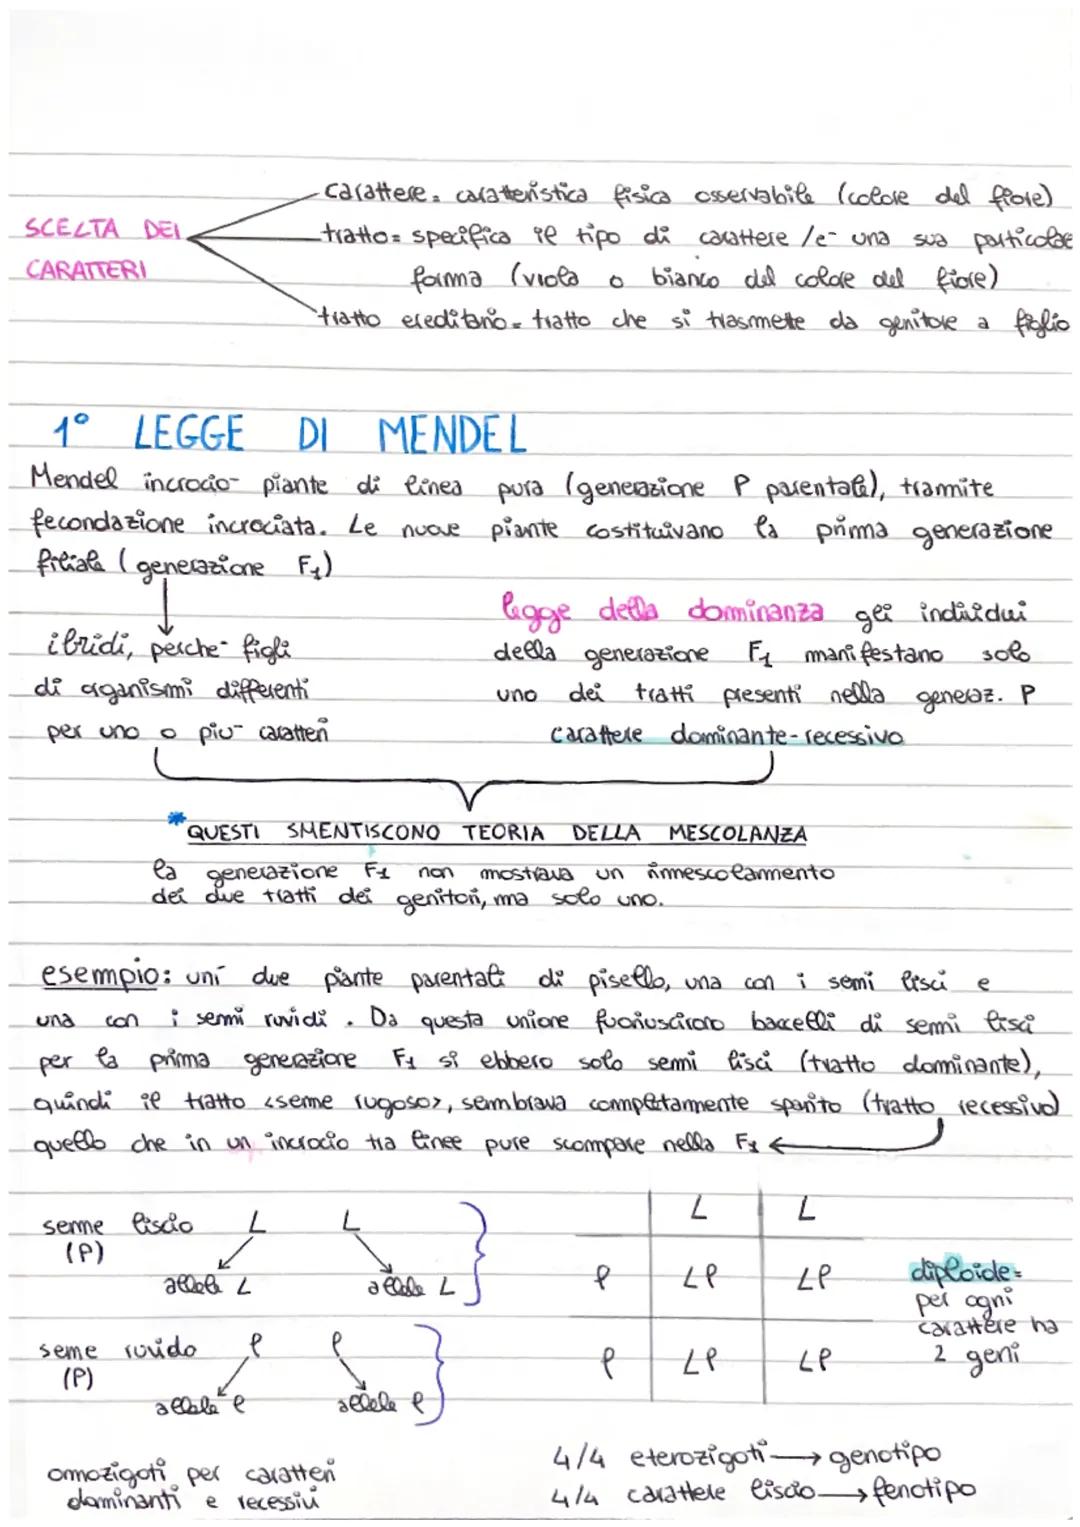 SCELTA DEI CARATTERI
carattere = caratteristica fisica osservabile (colore del fiore)
tratto = specifica il tipo di carattere /e- una sua particolare
forma (viola o bianco del colore del fiore)
tratto ereditario = tratto che si trasmette da genitore a figlio
1° LEGGE DI MENDEL
Mendel incrocio- piante di linea pura (generazione P parentale), tramite
fecondazione incrociata. Le nuove piante costituivano la prima generazione
filiale (generazione F1)
ibridi, perche- figli
di organismi differenti
per uno o piu- caratteri
legge della dominanza gli individui
della generazione F1 manifestano solo
uno dei tratti presenti nella generaz. P
carattere dominante-recessivo
*QUESTI SMENTISCONO TEORIA DELLA MESCOLANZA
la generazione F1 non mostrava un rimescolamento
dei due tratti dei genitori, ma solo uno.
esempio: unì due piante parentali di pisello, una con i semi lisci e
una con i semi ruvidi. Da questa unione fuoriuscirono baccelli di semi lisci
per la prima generazione F1 si ebbero solo semi lisci (tratto dominante),
quindi il tratto <seme rugoso>, sembrava completamente sparito (tratto recessivo)
quello che in un incrocio tra linee pure scompare nella F1
seme liscio L L
(P)
allele L allele L
seme ruvido l l
(P)
allele l allele l
omozigoti per caratteri
dominanti e recessivi
L L
l Ll Ll
l Ll Ll
diploide =
per ogni
carattere ha
2 geni
4/4 eterozigoti → genotipo
4/4 carattere liscio → fenotipo